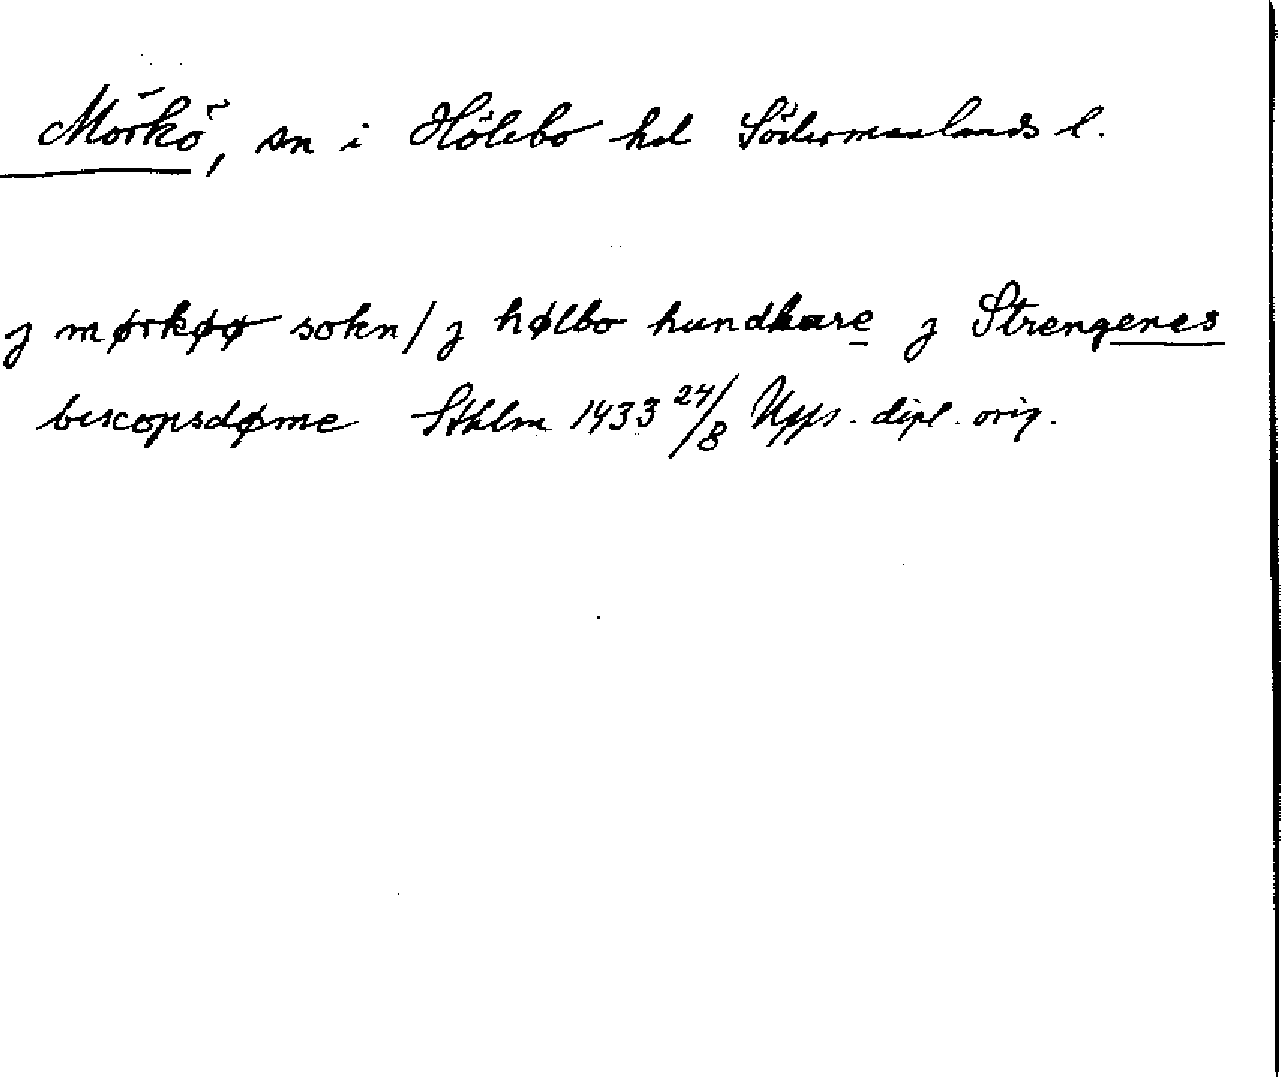 Mörkö, sn i Hölebo hd Södermanlands l.
j mørkøø sokn / j hølbo hundhare j Strengenes
biscopsdøme Sthlm 1433 24/8 Upps. dipl. orig.